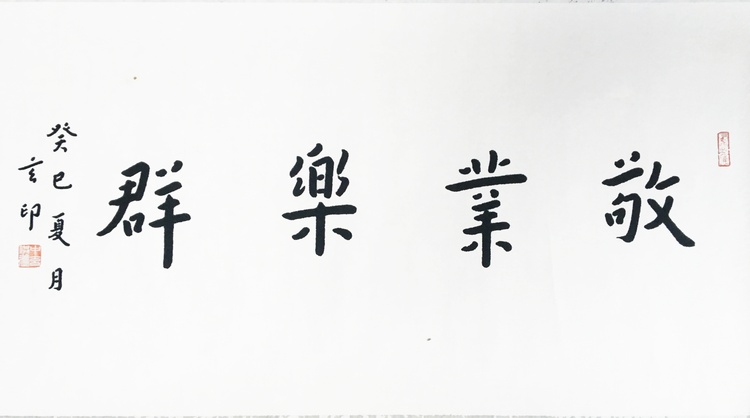 敬業樂群
癸巳夏月
玄印